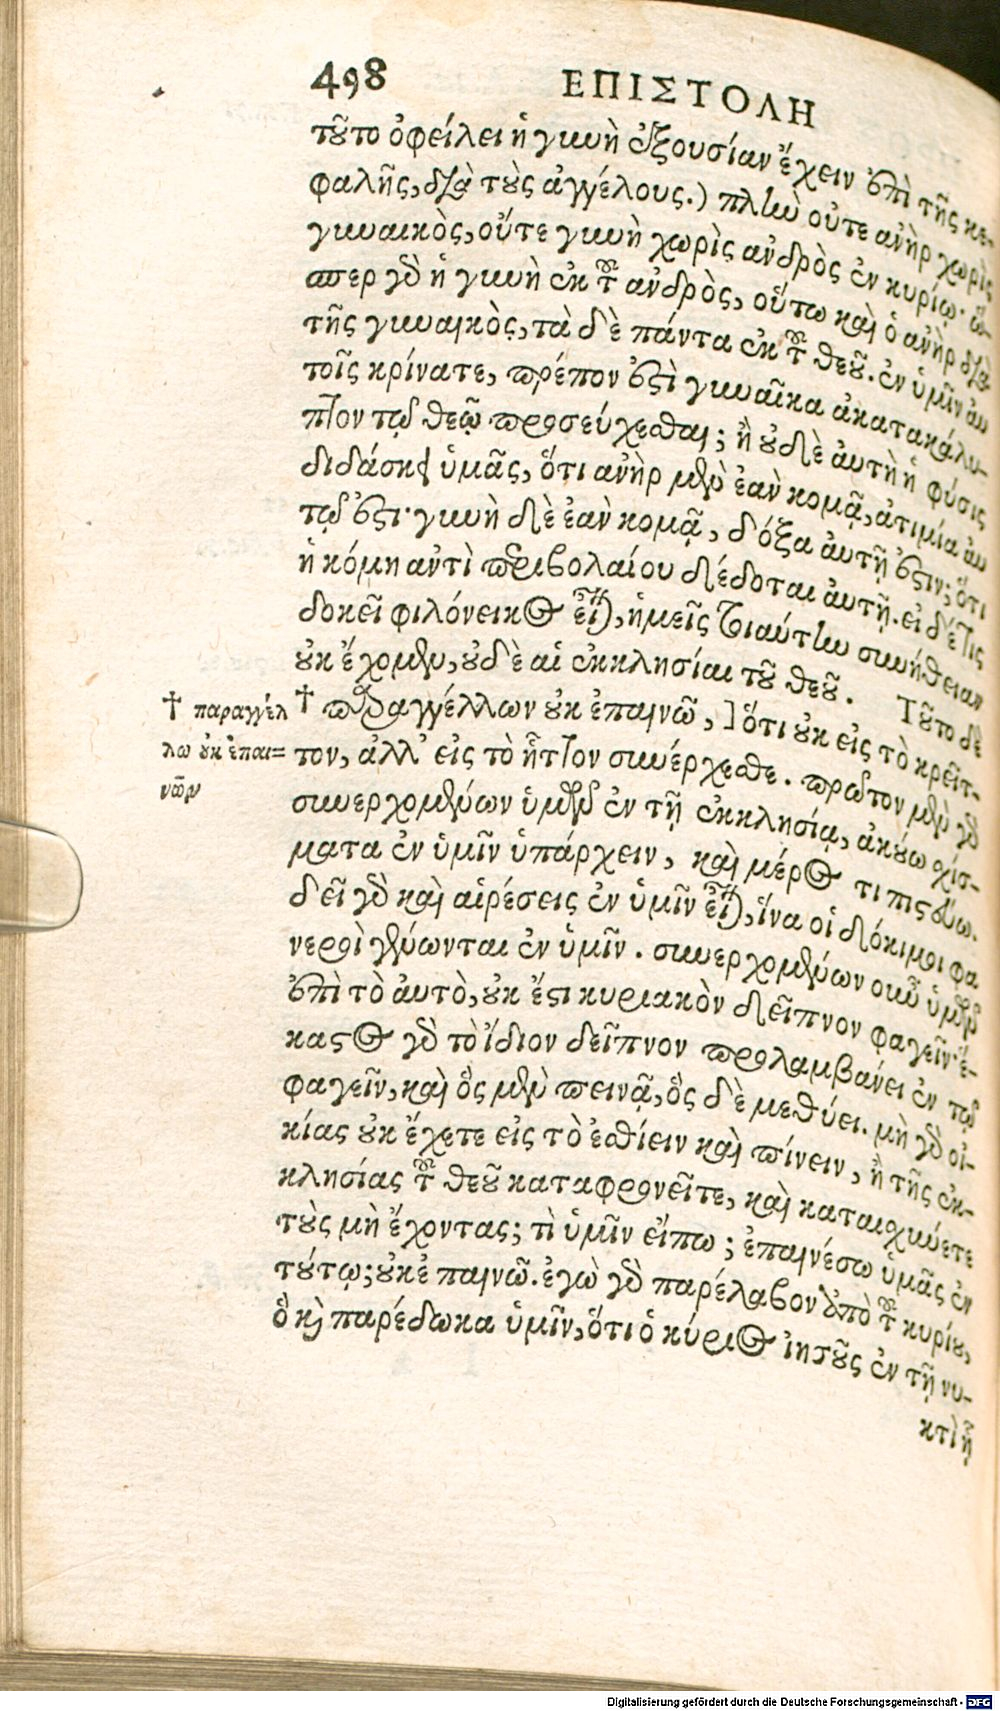 498 ΕΠΙΣΤΟΛΗ
τοῦτο ὀφείλει ἡ γυνὴ ἐξουσίαν ἔχειν ἐπὶ τῆς κε-
φαλῆς, διὰ τοὺς ἀγγέλους.) πλὴν οὔτε ἀνὴρ χωρὶς
γυναικὸς, οὔτε γυνὴ χωρὶς ἀνδρὸς ἐν κυρίῳ· ὥ-
σπερ γὸ ἡ γυνὴ ἐκ τοῦ ἀνδρὸς, οὕτω καὶ ὁ ἀνὴρ διὰ
τῆς γυναικὸς, τὰ δὲ πάντα ἐκ τοῦ θεοῦ. ἐν ὑμῖν αὐ
τοῖς κρίνατε, πρέπον ἐστὶ γυναῖκα ἀκατακάλυ-
πτον τῷ θεῷ προσεύχεσθαι; ἢ οὐδὲ αὐτὴ ἡ φύσις
διδάσκει ὑμᾶς, ὅτι ἀνὴρ μὲν ἐὰν κομᾷ, ἀτιμία αὐ
τῷ ἐστι· γυνὴ δὲ ἐὰν κομᾷ, δόξα αὐτῇ ἐστιν; ὅτι
ἡ κόμη ἀντὶ περιβολαίου δέδοται αὐτῇ. εἰ δέ τις
δοκεῖ φιλόνεικος εἶναι, ἡμεῖς τοιαύτην συνήθειαν
οὐκ ἔχομεν, οὐδὲ αἱ ἐκκλησίαι τοῦ θεοῦ. Τοῦτο δὲ
† παραγγέλλων οὐκ ἐπαινῶ, ] ὅτι οὐκ εἰς τὸ κρεῖτ-
τον, ἀλλ' εἰς τὸ ἧττον συνέρχεσθε. πρῶτον μὲν γὸ
συνερχομένων ὑμῶν ἐν τῇ ἐκκλησίᾳ, ἀκούω σχίσ-
ματα ἐν ὑμῖν ὑπάρχειν, καὶ μέρος τι πιστεύω.
δεῖ γὸ καὶ αἱρέσεις ἐν ὑμῖν εἶναι, ἵνα οἱ δόκιμοι φα
νεροὶ γένωνται ἐν ὑμῖν. συνερχομένων οὖν ὑμῶν
ἐπὶ τὸ αὐτὸ, οὐκ ἔστι κυριακὸν δεῖπνον φαγεῖν· ἕ-
καστος γὸ τὸ ἴδιον δεῖπνον προλαμβάνει ἐν τῷ
φαγεῖν, καὶ ὃς μὲν πεινᾷ, ὃς δὲ μεθύει. μὴ γὸ οἰ-
κίας οὐκ ἔχετε εἰς τὸ ἐσθίειν καὶ πίνειν, ἢ τῆς ἐκ-
κλησίας τοῦ θεοῦ καταφρονεῖτε, καὶ καταισχύνετε
τοὺς μὴ ἔχοντας; τὶ ὑμῖν εἴπω; ἐπαινέσω ὑμᾶς ἐν
τούτῳ; οὐκ ἐπαινῶ. ἐγὼ γὸ παρέλαβον ἀπὸ τοῦ κυρίου,
ὃ καὶ παρέδωκα ὑμῖν, ὅτι ὁ κύριος ἰησοῦς ἐν τῇ νυ-
κτὶ ᾗ
† παραγγέλ
λω οὐκ ἐπαι=
νῶν
Digitalisierung gefördert durch die Deutsche Forschungsgemeinschaft - DFG